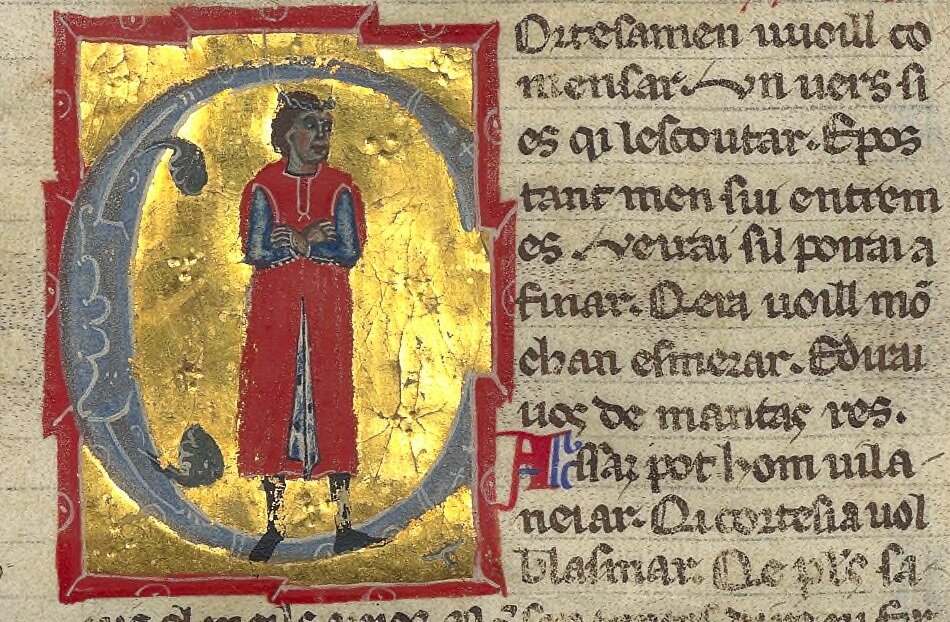 Ortesamen uuoill co
mensar. Un uers si
es qi lescoutar. Epos
tant men sui entrem
es. Veirai sil poirai a
finar. Qera uoill mō
chan esmerar. Edirai
uos de maintas res.
Assaz pot hom uila
neiar. Qi cortesia uol
blasmar. Qe pl's sa